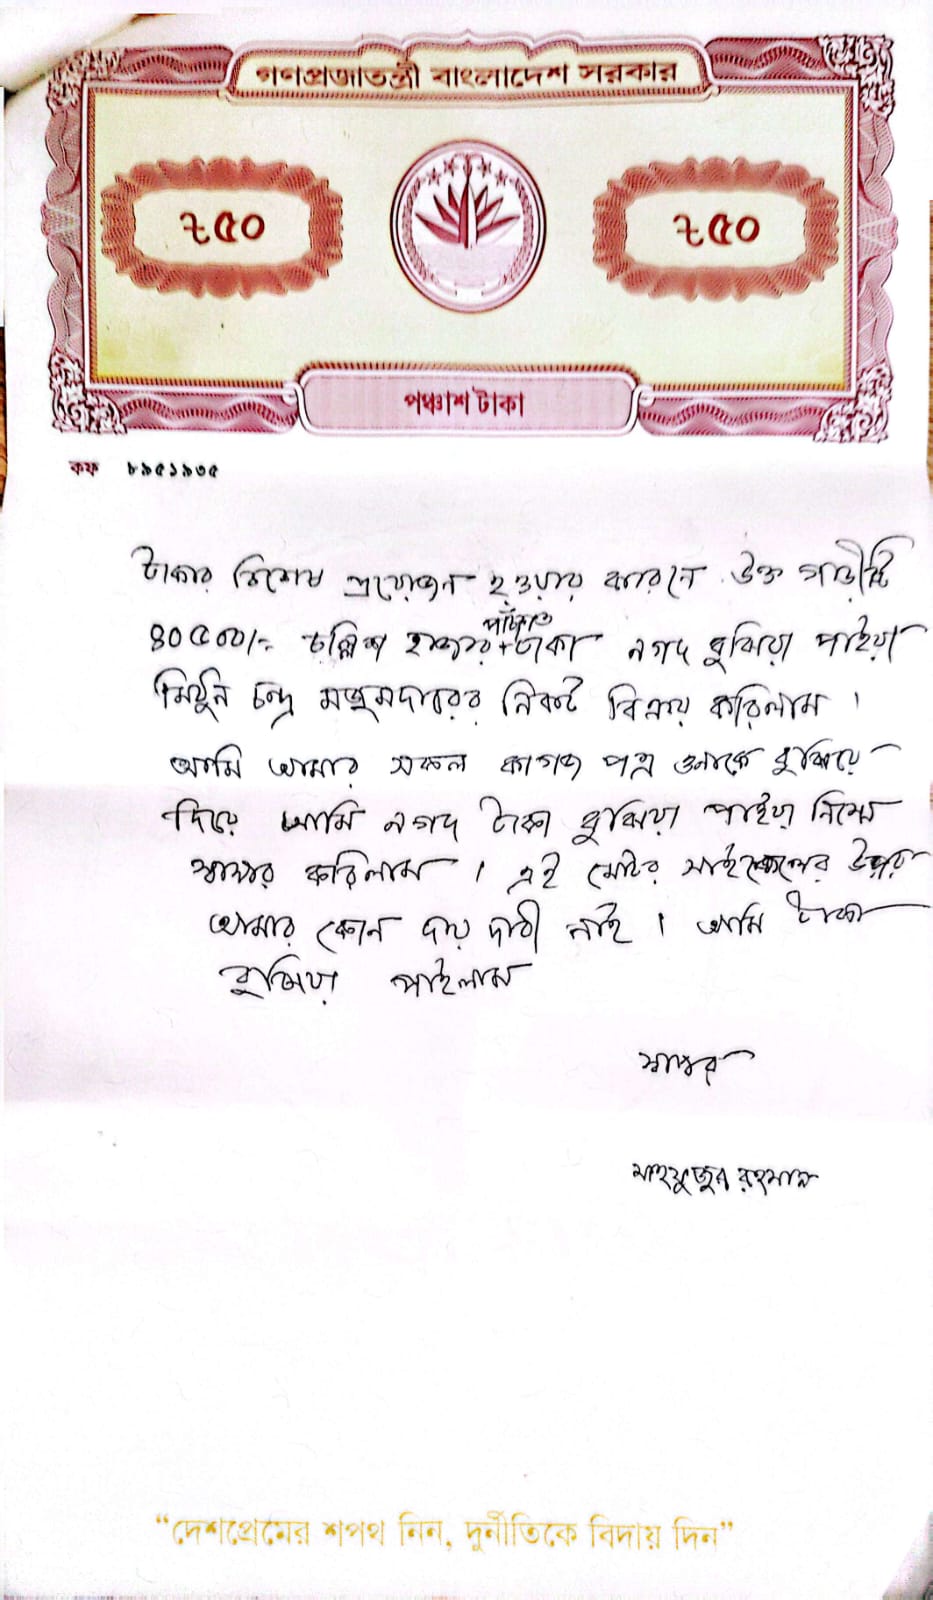 গণপ্রজাতন্ত্রী বাংলাদেশ সরকার
৳৫০ ৳৫০
পঞ্চাশ টাকা
কফ ৮৯৫১৯৩৫
টাকার বিশেষ প্রয়োজন হওয়ার কারনে উক্ত গাড়ীটি
পাঁচশত
৪০৫০০/- চল্লিশ হাজার + টাকা নগদ বুঝিয়া পাইয়া
মিঠুন চন্দ্র মজুমদারের নিকট বিক্রয় করিলাম ।
আমি আমার সকল কাগজ পত্র ওনাকে বুঝিয়ে
দিয়ে আমি নগদ টাকা বুঝিয়া পাইয়া নিম্মে
স্বাক্ষর করিলাম । এই মোটর সাইকেলের উপর
আমার কোন দায় দাবী নাই । আমি টাকা
বুঝিয়া পাইলাম
স্বাক্ষর
মাহফুজুর রহমান
“দেশপ্রেমের শপথ নিন, দুর্নীতিকে বিদায় দিন”